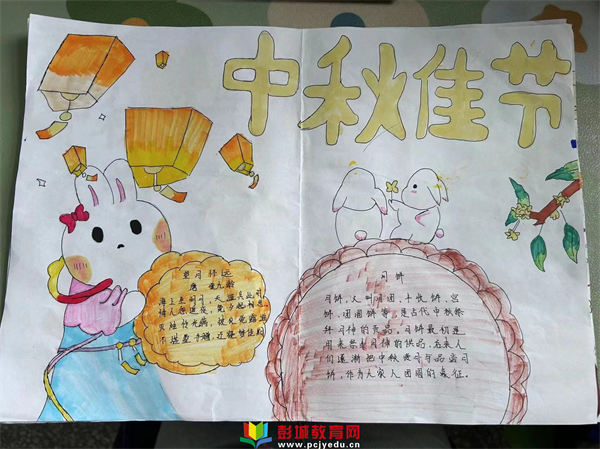 中秋佳节
望月怀远
唐 张九龄
海上生明月，天涯共此时
情人怨遥夜，竟夕起相思
灭烛怜光满，披衣觉露滋
不堪盈手赠，还寝梦佳期
月饼
月饼，又叫月团、小饼、宫
饼、团圆饼等，是古代中秋祭
拜月神的贡品。月饼最初是
用来祭拜月神的供品，后来人
们逐渐把中秋赏月与品尝月
饼，作为家人团圆的象征。
彭城教育网
www.pcjyedu.cn